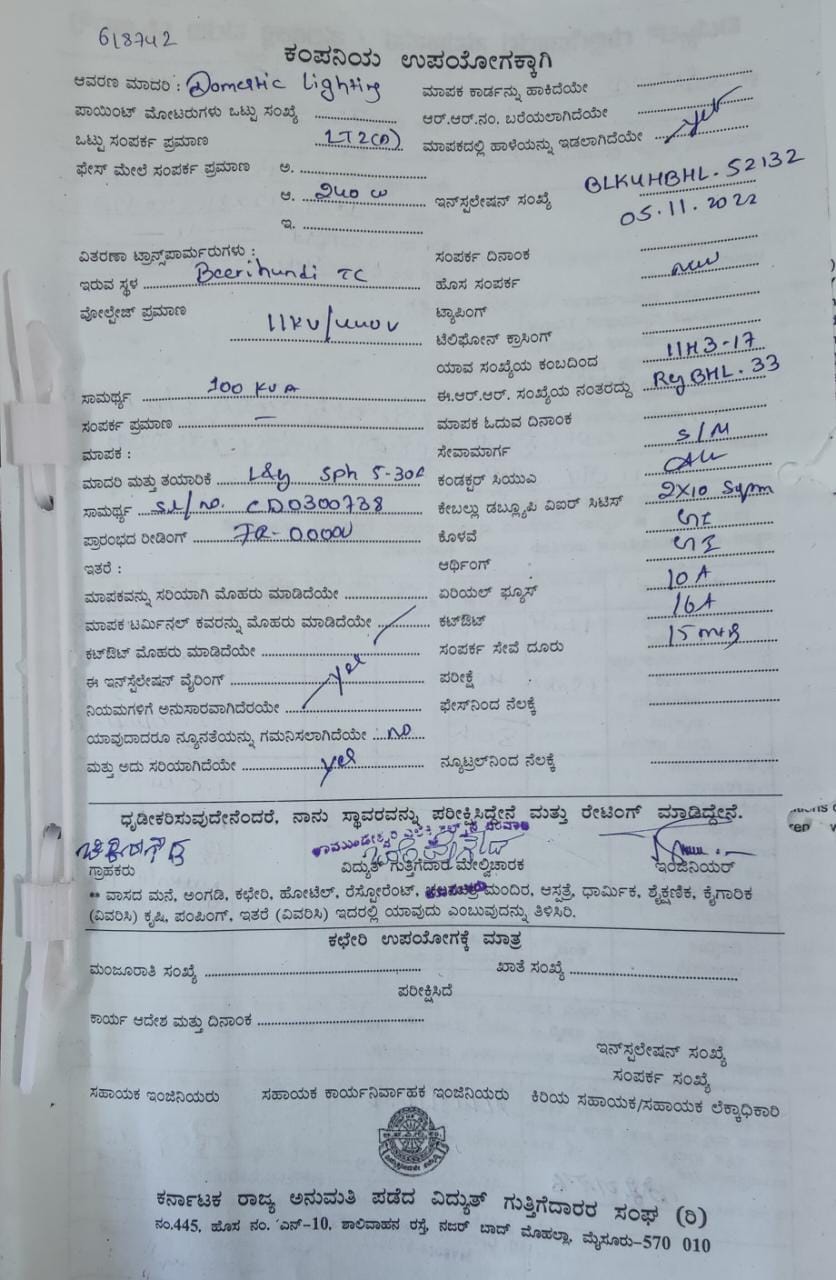 618742
ಕಂಪನಿಯ ಉಪಯೋಗಕ್ಕಾಗಿ
ಆವರಣ ಮಾದರಿ : Domestic Lighting
ಮಾಪಕ ಕಾರ್ಡನ್ನು ಹಾಕಿದೆಯೇ
ಪಾಯಿಂಟ್ ಮೋಟರುಗಳು ಒಟ್ಟು ಸಂಖ್ಯೆ
ಆರ್.ಆರ್.ನಂ. ಬರೆಯಲಾಗಿದೆಯೇ
ಒಟ್ಟು ಸಂಪರ್ಕ ಪ್ರಮಾಣ LT2(A)
ಮಾಪಕದಲ್ಲಿ ಹಾಳೆಯನ್ನು ಇಡಲಾಗಿದೆಯೇ yes
ಫೇಸ್ ಮೇಲೆ ಸಂಪರ್ಕ ಪ್ರಮಾಣ ಅ.
ಆ. ೨೪೦ W
ಇನ್‌ಸ್ಪಲೇಷನ್ ಸಂಖ್ಯೆ BLKUHBHL.52132
05.11.2022
ಇ.
ವಿತರಣಾ ಟ್ರಾನ್ಸ್‌ಪಾರ್ಮರುಗಳು :
ಸಂಪರ್ಕ ದಿನಾಂಕ
ಇರುವ ಸ್ಥಳ Beerihundi TC
ಹೊಸ ಸಂಪರ್ಕ new
ವೋಲ್ಟೇಜ್ ಪ್ರಮಾಣ 11KV/440V
ಟ್ಯಾಪಿಂಗ್
ಟೆಲಿಫೋನ್ ಕ್ರಾಸಿಂಗ್
ಯಾವ ಸಂಖ್ಯೆಯ ಕಂಬದಿಂದ 11H3-17
ಸಾಮರ್ಥ್ಯ 100 KVA
ಈ.ಆರ್.ಆರ್. ಸಂಖ್ಯೆಯ ನಂತರದ್ದು BHL.33
ಸಂಪರ್ಕ ಪ್ರಮಾಣ —
ಮಾಪಕ ಓದುವ ದಿನಾಂಕ
ಮಾಪಕ :
ಸೇವಾಮಾರ್ಗ S/M
ಮಾದರಿ ಮತ್ತು ತಯಾರಿಕೆ Sph 5-30A
ಕಂಡಕ್ಟರ್ ಸಿಯುಎ
ಸಾಮರ್ಥ್ಯ Sl/no. CD0300738
ಕೇಬಲ್ಲು ಡಬ್ಲ್ಯೂಪಿ ಎಐರ್ ಸಿಟಿಸ್ 2X10 Sqmm
ಪ್ರಾರಂಭದ ರೀಡಿಂಗ್ IR-0.000
ಕೊಳವೆ GI
ಇತರೆ :
ಆರ್ಥಿಂಗ್ GI
ಮಾಪಕವನ್ನು ಸರಿಯಾಗಿ ಮೊಹರು ಮಾಡಿದೆಯೇ
ಏರಿಯಲ್ ಫ್ಯೂಸ್ 10A
ಮಾಪಕ ಟರ್ಮಿನಲ್ ಕವರನ್ನು ಮೊಹರು ಮಾಡಿದೆಯೇ
ಕಟ್‌ಔಟ್ 16A
ಕಟ್‌ಔಟ್ ಮೊಹರು ಮಾಡಿದೆಯೇ
ಸಂಪರ್ಕ ಸೇವೆ ದೂರು 15 mtr
ಈ ಇನ್‌ಸ್ಪೆಲೇಷನ್ ವೈರಿಂಗ್ yes
ಪರೀಕ್ಷೆ
ನಿಯಮಗಳಿಗೆ ಅನುಸಾರವಾಗಿದೆರಯೇ
ಫೇಸ್‌ನಿಂದ ನೆಲಕ್ಕೆ
ಯಾವುದಾದರೂ ನ್ಯೂನತೆಯನ್ನು ಗಮನಿಸಲಾಗಿದೆಯೇ no
ಮತ್ತು ಅದು ಸರಿಯಾಗಿದೆಯೇ yes
ನ್ಯೂಟ್ರಲ್‌ನಿಂದ ನೆಲಕ್ಕೆ
ಧೃಡೀಕರಿಸುವುದೇನೆಂದರೆ, ನಾನು ಸ್ಥಾವರವನ್ನು ಪರೀಕ್ಷಿಸಿದ್ದೇನೆ ಮತ್ತು ರೇಟಿಂಗ್ ಮಾಡಿದ್ದೇನೆ.
ಗ್ರಾಹಕರು
ವಿದ್ಯುತ್ ಗುತ್ತಿಗೆದಾರ ಮೇಲ್ವಿಚಾರಕ
ಇಂಜಿನಿಯರ್
** ವಾಸದ ಮನೆ, ಅಂಗಡಿ, ಕಛೇರಿ, ಹೋಟೆಲ್, ರೆಸ್ಟೋರೆಂಟ್, ಮಂದಿರ, ಆಸ್ಪತ್ರೆ, ಧಾರ್ಮಿಕ, ಶೈಕ್ಷಣಿಕ, ಕೈಗಾರಿಕ
(ವಿವರಿಸಿ) ಕೃಷಿ, ಪಂಪಿಂಗ್, ಇತರೆ (ವಿವರಿಸಿ) ಇದರಲ್ಲಿ ಯಾವುದು ಎಂಬುವುದನ್ನು ತಿಳಿಸಿರಿ.
ಕಛೇರಿ ಉಪಯೋಗಕ್ಕೆ ಮಾತ್ರ
ಮಂಜೂರಾತಿ ಸಂಖ್ಯೆ
ಖಾತೆ ಸಂಖ್ಯೆ
ಪರೀಕ್ಷಿಸಿದೆ
ಕಾರ್ಯ ಆದೇಶ ಮತ್ತು ದಿನಾಂಕ
ಇನ್‌ಸ್ಪಲೇಷನ್ ಸಂಖ್ಯೆ
ಸಂಪರ್ಕ ಸಂಖ್ಯೆ
ಸಹಾಯಕ ಇಂಜಿನಿಯರು
ಸಹಾಯಕ ಕಾರ್ಯನಿರ್ವಾಹಕ ಇಂಜಿನಿಯರು
ಕಿರಿಯ ಸಹಾಯಕ/ಸಹಾಯಕ ಲೆಕ್ಕಾಧಿಕಾರಿ
ಕರ್ನಾಟಕ ರಾಜ್ಯ ಅನುಮತಿ ಪಡೆದ ವಿದ್ಯುತ್ ಗುತ್ತಿಗೆದಾರರ ಸಂಘ (ರಿ)
ನಂ.445, ಹೊಸ ನಂ. ಎನ್-10, ಶಾಲಿವಾಹನ ರಸ್ತೆ, ನಜರ್ ಬಾದ್ ಮೊಹಲ್ಲಾ, ಮೈಸೂರು-570 010